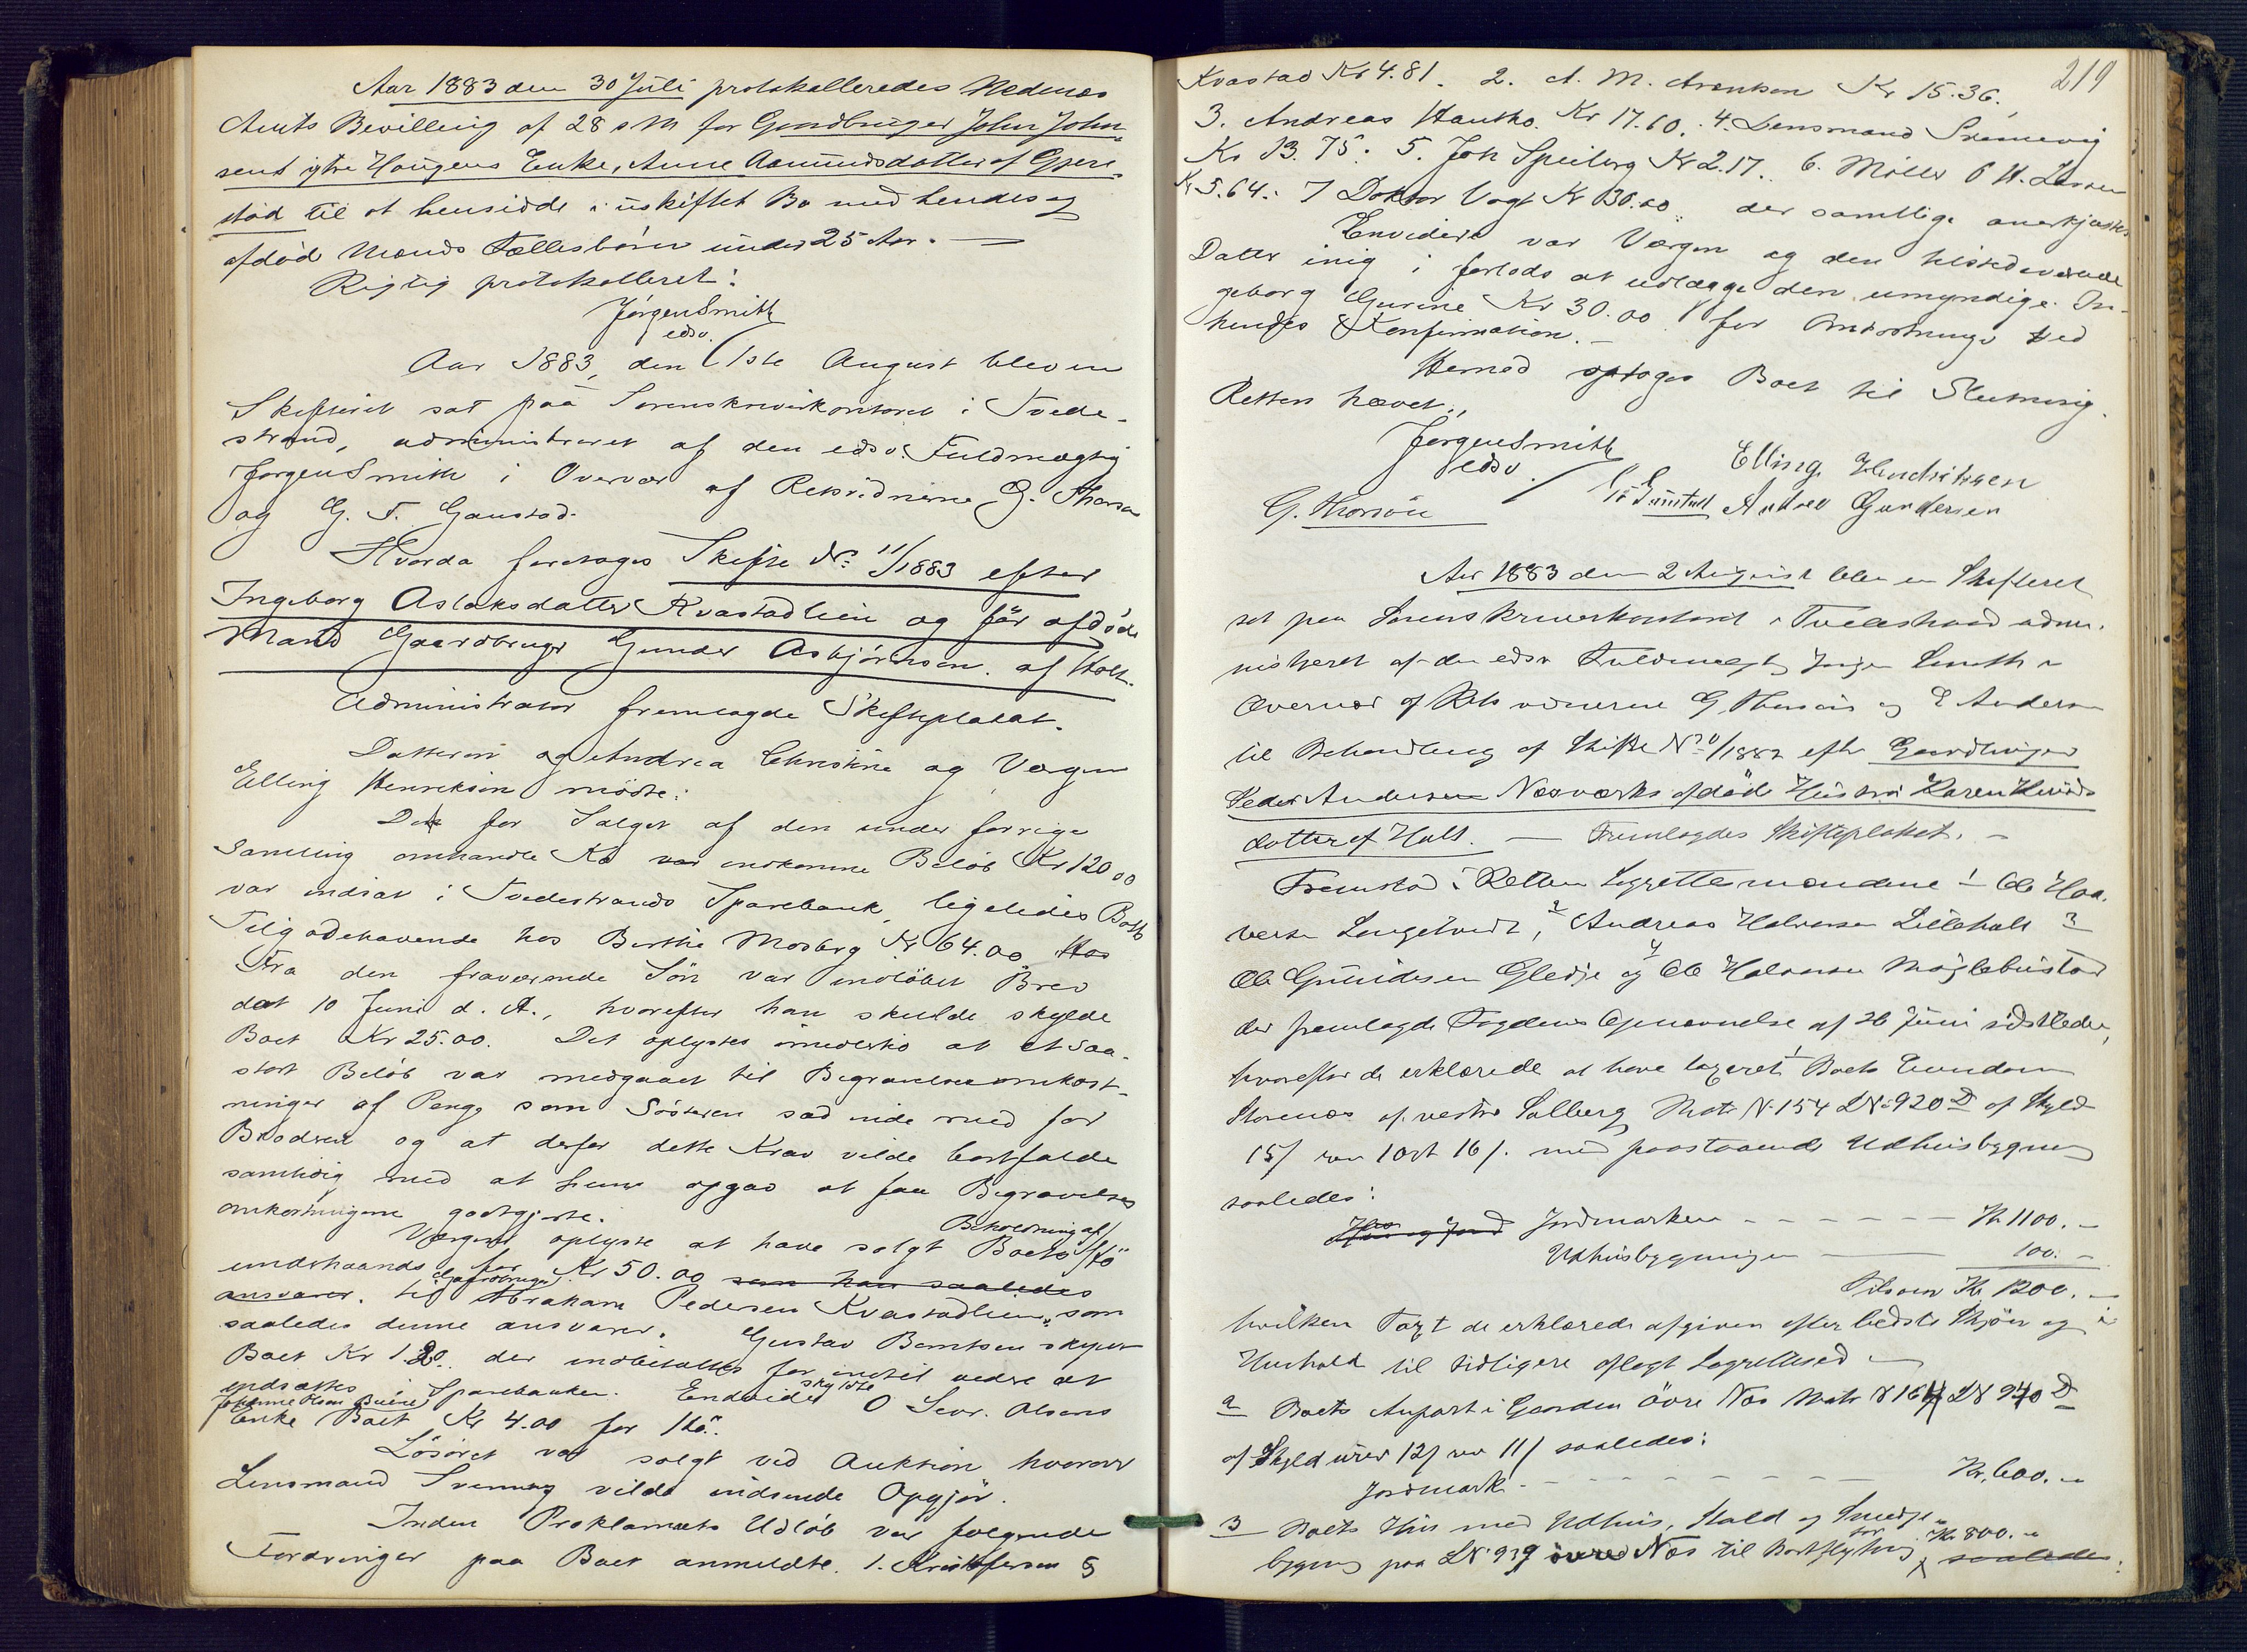 Aar 1883 den 30 Juli protokolleredes Nedenes
Amts Bevilling af 28 s M for Gaardbruger John John-
sens ytre Haugens Enke, Anne Aamundsdatter af Gjere-
stad til at hensidde i uskiftet Bo med hendes og
afdöd Mands Fællesbörn under 25 Aar. —
Rigtig protokolleret:
Jørgen Smith
edsv.
Aar 1883, den 1ste August blev en
Skifteret sat paa Sorenskriverkontoret i Tvede-
strand, administreret af den edsv Fuldmægtig
Jørgen Smith i Overvær af Retsvidnerne G. Thorsen
og G. T. Gaustad.
Hvorda foretoges Skifte No 11/1883 efter
Ingeborg Aslaksdatter Kvastadlien og før afdöde
Mand Gaardbruger Gunder Asbjörnsen af Holt.
Administrator fremlagde Skifteplakat.
Datteren Andrea Christine og Værgen
Elling Henriksen mödte:
Det for Salget af den under forrige
Samling omhandlede Ko var indkomne Beløb Kr 120 00
var indsat i Tvedestrands Sparebank, ligeledes Boets
Tilgodehavende hos Berthe Mosberg Kr 64.00.
Fra den fraværende Sön var indlöbet Brev
dat 10 Juni d. A., hvorefter han skulde skylde
Boet Kr 25.00. Det oplystes imidlertid at et saa-
stort Belöb var medgaaet til Begravelsesomkost-
ninger af Penge som Sösteren sad inde med for
Broderen og at derfor dette Krav vilde bortfalde
samtidig med at hun opgav at faa Begravelses
omkostningerne godtgjorte.
Beholdning af
Værgen oplyste at have solgt Boets Hö
underhaands for Kr 50.00 som han saaledes
Gaardbruger
ansvarer. til Abraham Pedersen Kvastadlien, som
saaledes denne ansvarer. Gustav Berntsen skyldte
Boet Kr 1.20 der indbetaltes for indtil videre at
indsættes i Sparebanken. Endvidere skyldte O Sevr. Olsens
Enke Boet Kr 4.00 for Hö.
Lösöret var solgt ved Auktion hvorover
Lensmand Svennevig vilde indsende Opgjör.
Inden Proklamaets Udlöb var folgende
Fordringer paa Boet anmeldte. 1. Kristoffersen
219
Kvastad Kr 4.81. 2. A. M. Arentsen Kr 15.36.
3. Andreas Hantho. Kr 17.60. 4. Lensmand Svennevig
Kr 13.75. 5. Joh Speilberg Kr 2.17. 6. Möller O H. Larsen
Kr 5.64. 7 Doktor Vogt Kr 30.00. der samtlige anerkjendtes
Envidere var Værgen og den tilstedeværende
Datter enig i forlods at udlægge den umyndige In-
geborg Gurine Kr 30.00 for Omkostninger ved
hendes Konfirmation. —
Hermed optoges Boet til Slutning.
Retten hævet.,
Jørgen Smith
edsv.
Elling Hendriksen
G. Thorsen G T Gaustad Andrea Gundersen
Aar 1883 den 2 August blev en Skifteret
sat paa Sorenskriverkontoret i Tvedestrand admi-
nistreret af den edsv Fuldmægtig Jørgen Smith i
Overvær af Retsvidnerne G. Thorsen og E Andersen
til Behandling af Skifte No /1882 efter Gaardbruger
Peder Andersen Næsværks afdöde Hustru Karen Knuds
datter af Holt. — Fremlagdes Skifteplakat. —
Fremstod i Retten Lagrettemændene 1 Ole Haa-
versen Langetvedt, 2 Andreas Halvorsen Lilleholt 3
Ole Gundersen Gledje og 4 Ole Halvorsen Möglebustad
der fremlagde Fogdens Opnævnelse af 26 Juni sidstleden,
hvorefter de erklærede at have taxeret 1 Boets Eiendom
Storenæs af vestre Solberg Matr N. 154 LN: 920 D af Skyld
15/ rev 1 Ort 16/. med paastaaende Udhusbygning
saaledes:
Hus og Jord Jordmarken - - - - - - - Kr 1100. —
Udhusbygningen — 100. —
Tilsam Kr. 1200. —
hvilken Taxt de erklærede afgiven efter bedste Skjön og i
Henhold til tidligere aflagt Lagretteed —
2 Boets Anpart i Gaarden Övre Næs Matr N 164 LN 940 D
af Skyld urev 12/ rev 11/ saaledes:
Jordmark - - - - - - - - Kr. 600. —
3 Boets Hus med Udhus, Stald og Smedje-
bygning paa LN: 939 övre Næs til Bortflytning for Kr 800. — saaledes: